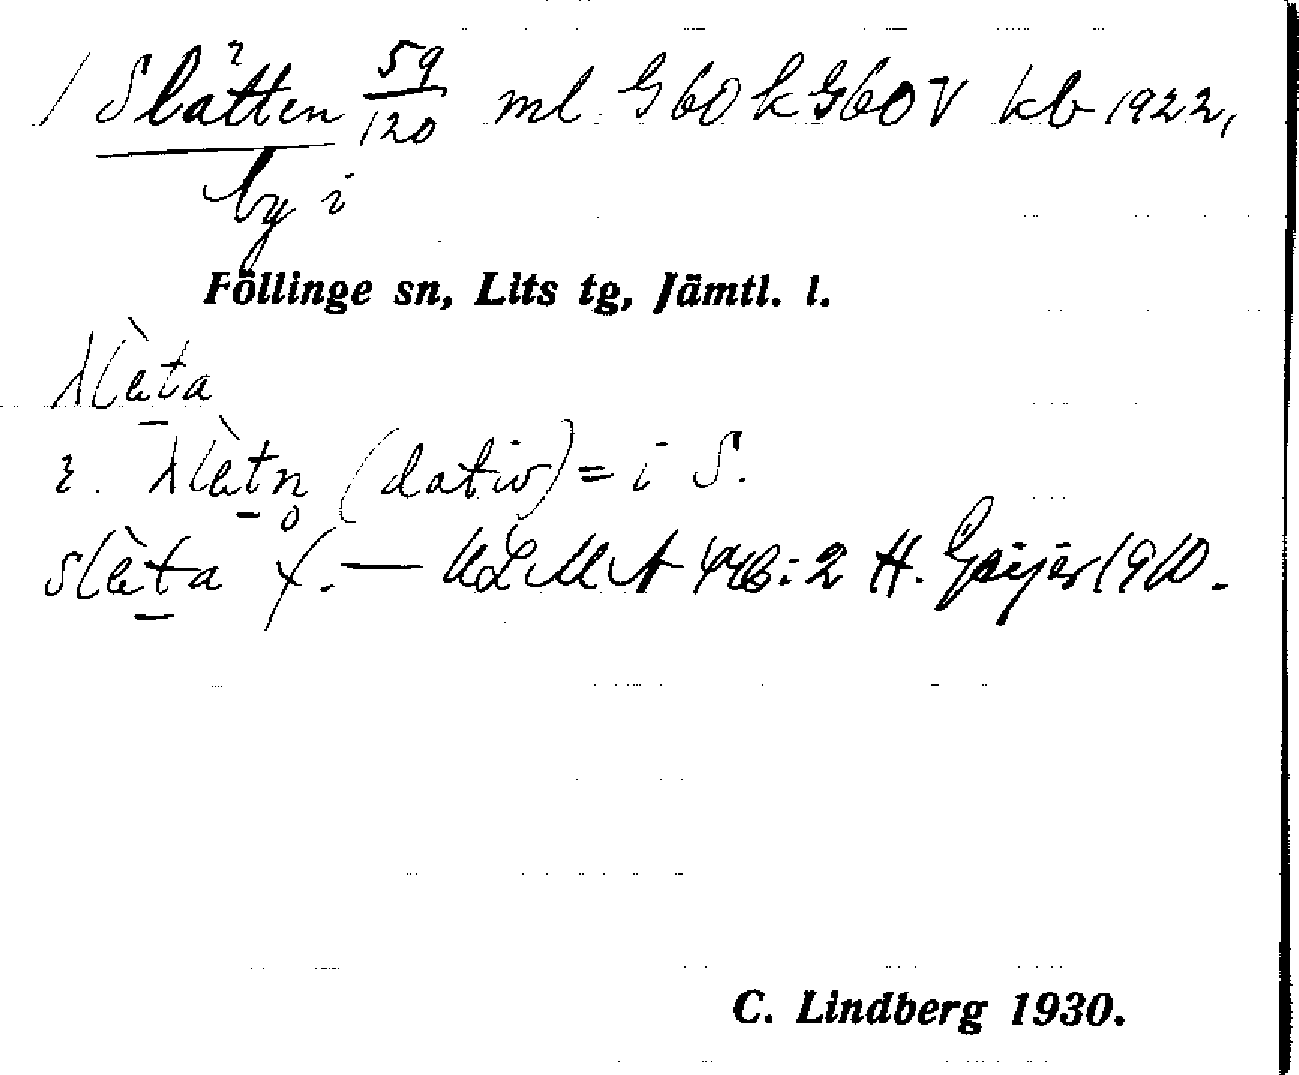 / Slåtten 59/120 ml G60k G60V kb 1922,
by i
Föllinge sn, Lits tg, Jämtl. l.
slèta
i. slètn̥ (dativ) = i S.
slèta f. — ULMA 446:2 H. Geijer 1910.
C. Lindberg 1930.